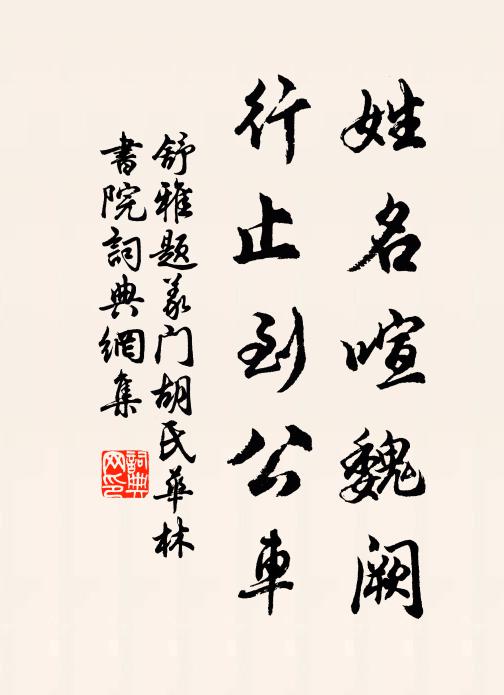 姓名喧魏阙
行止到公車
舒雅题義门胡氏華林
書院詞典網集
詞典网印